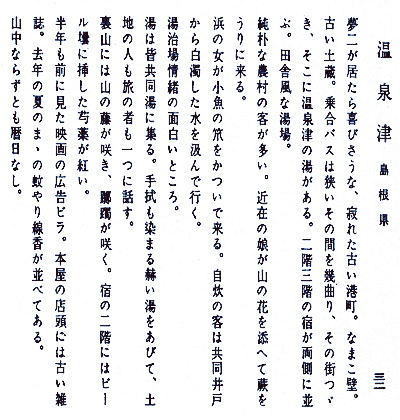 温泉津 島根県
三二
夢二が居たら喜びさうな、寂れた古い港町。なまこ壁。
古い土蔵。乗合バスは狭いその間を幾曲り、その街つゞ
き、そこに温泉津の湯がある。二階三階の宿が両側に並
ぶ。田舎風な湯場。
純朴な農村の客が多い。近在の娘が山の花を添へて蕨を
うりに来る。
浜の女が小魚の笊をかついで来る。自炊の客は共同井戸
から白濁した水を汲んで行く。
湯治場情緒の面白いところ。
湯は皆共同湯に集る。手拭も染まる赫い湯をあびて、土
地の人も旅の者も一つに話す。
裏山には山の藤が咲き、躑躅が咲く。宿の二階にはビー
ル壜に挿した芍薬が紅い。
半年も前に見た映画の広告ビラ。本屋の店頭には古い雑
誌。去年の夏のまゝの蚊やり線香が並べてある。
山中ならずとも暦日なし。